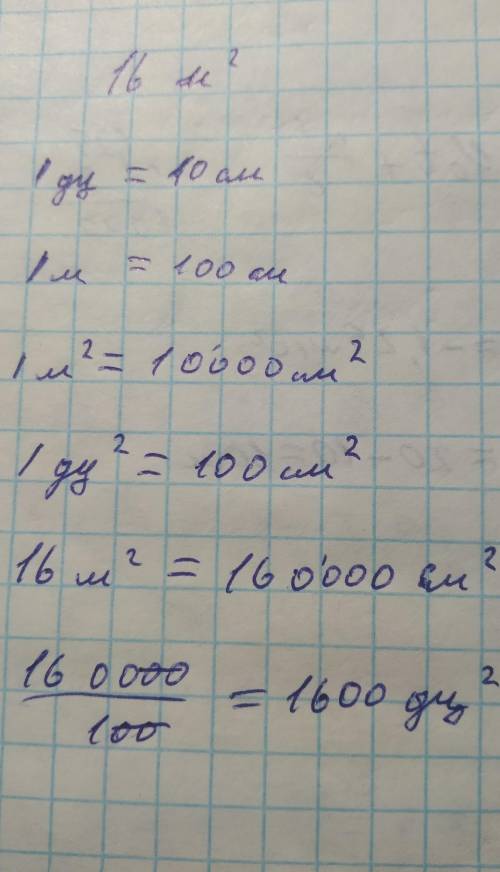 16 м²
1 дц = 10 см
1 м = 100 см
1 м² = 10000 см²
1 дц² = 100 см²
16 м² = 160000 см²
160000/100 = 1600 дц²